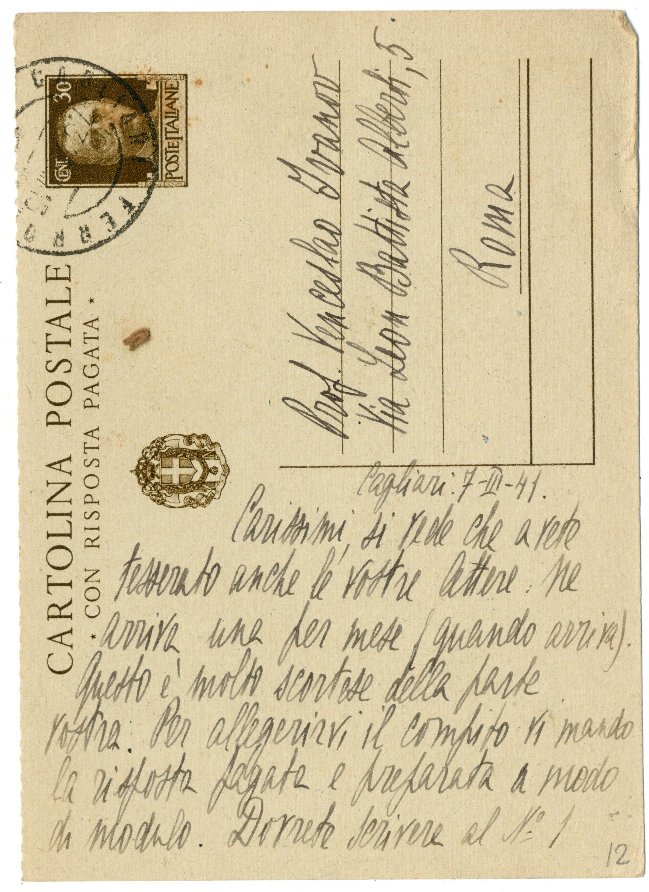 CARTOLINA POSTALE
* CON RISPOSTA PAGATA *
CENT. 30
POSTE ITALIANE
CAGLIARI
FERRO
Prof. Venceslao Ivanov
Via Leon Battista Alberti, 5
Roma
Cagliari. 7-III-41.
Carissimi, si vede che avete
tesserato anche le vostre lettere. Ne
arriva una per mese (quando arriva).
Questo è molto scortese della parte
vostra. Per allegerirvi il compito vi mando
la risposta pagata e preparata a modo
di modulo. Dovrete scrivere al Nº 1
12